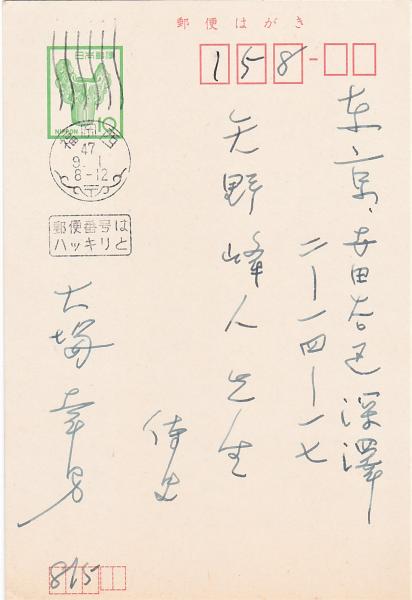 郵便はがき
158
日本郵便
NIPPON 10
福岡
47
9. 1
8-12
〒
郵便番号は
ハッキリと
東京、世田谷区深澤
二ー一四ー一七
矢野峰人先生
侍史
大塚幸男
815